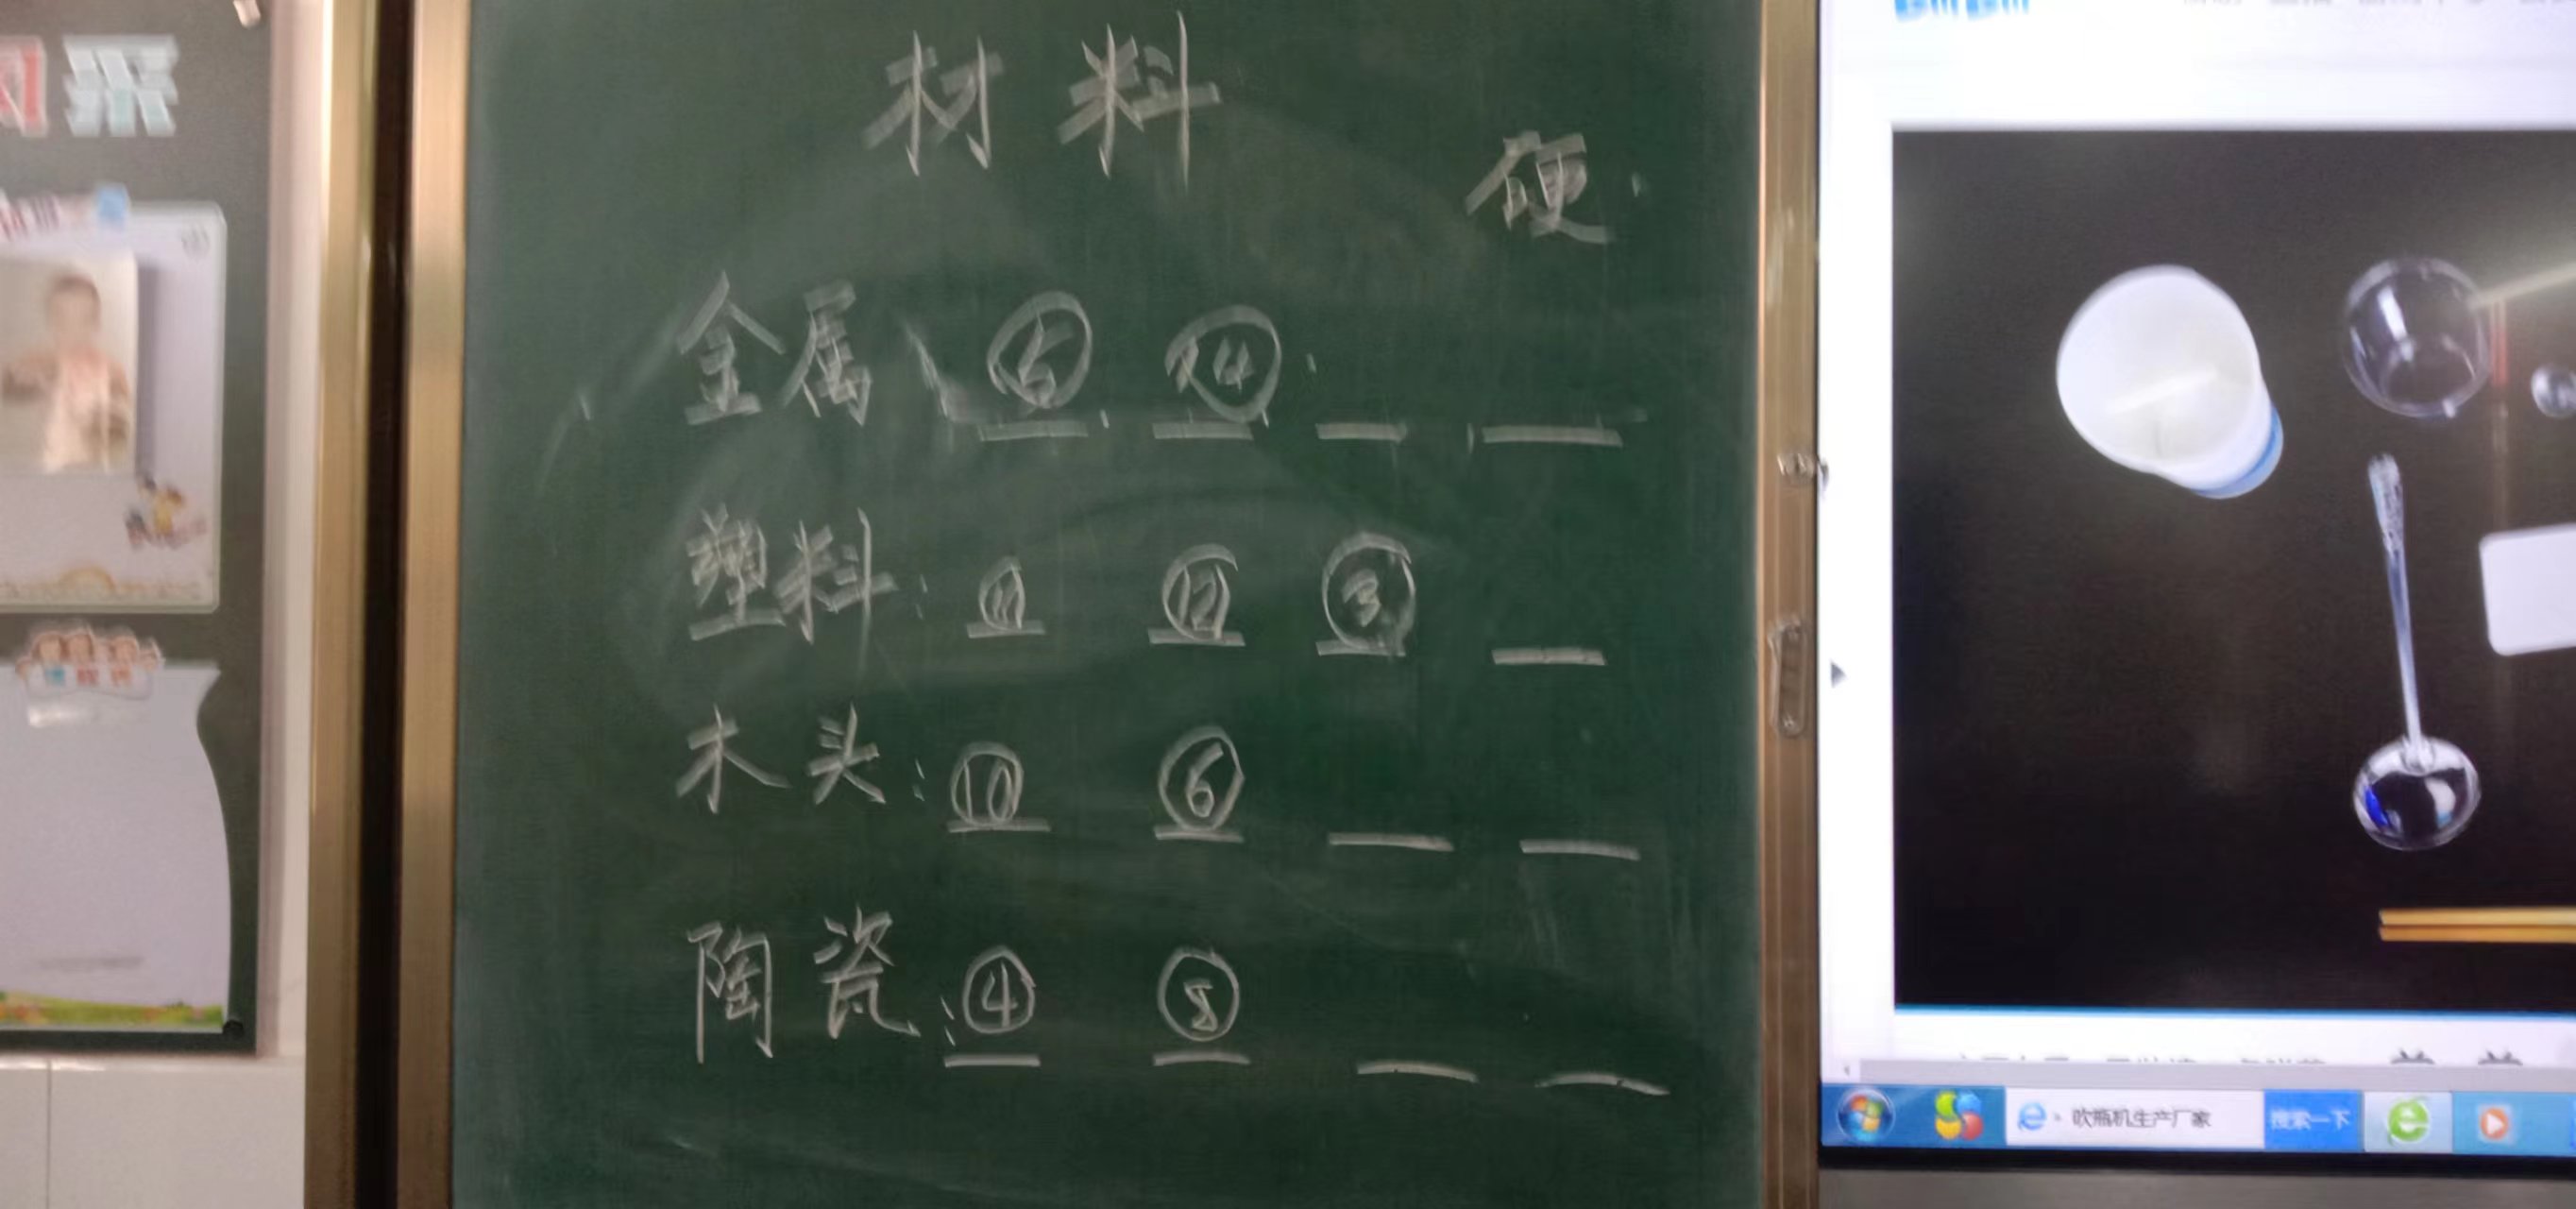 材料
硬
金属、⑤ ⑭
塑料：⑪ ⑫ ③
木头：⑩ ⑥
陶瓷：④ ⑧
吹瓶机生产厂家 搜索一下